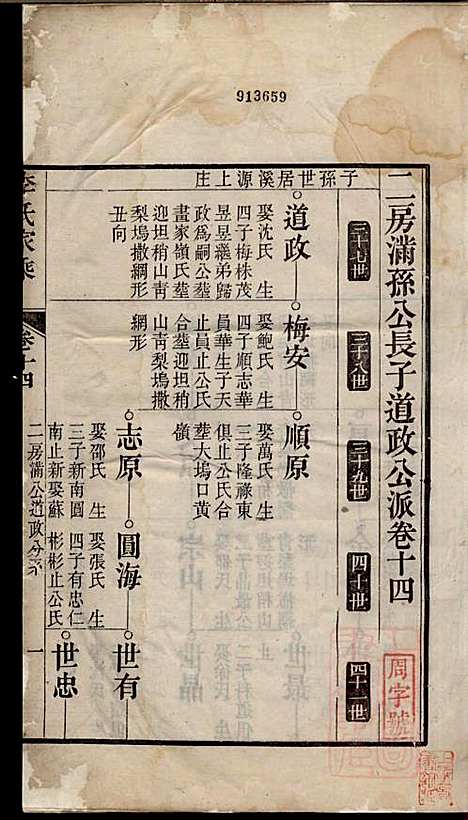 913659
二房滿孫公長子道政公派卷十四
周字號
三十七世
三十八世
三十九世
四十世
四十一世
子孫世居溪源上庄
道政
娶沈氏 生
四子梅株茂
昱昱繼弟歸
政為嗣公塟
畫家嶺氏塟
迎坦稍山青
梨塢撒網形
丑向
梅安
娶鮑氏 生
四子順志華
員華生子天
止員止公氏
合塟迎坦稍
山青梨塢撒
網形
順原
娶萬氏 生
三子隆祿東
俱止公氏合
塟大塢口黃
嶺
志原
娶邵氏 生
三子新南圓
南止新娶蘇
圓海
娶張氏 生
四子有忠仁
彬彬止公氏
世有
世忠
氏家乘
卷十四
二房滿公道政分派
一